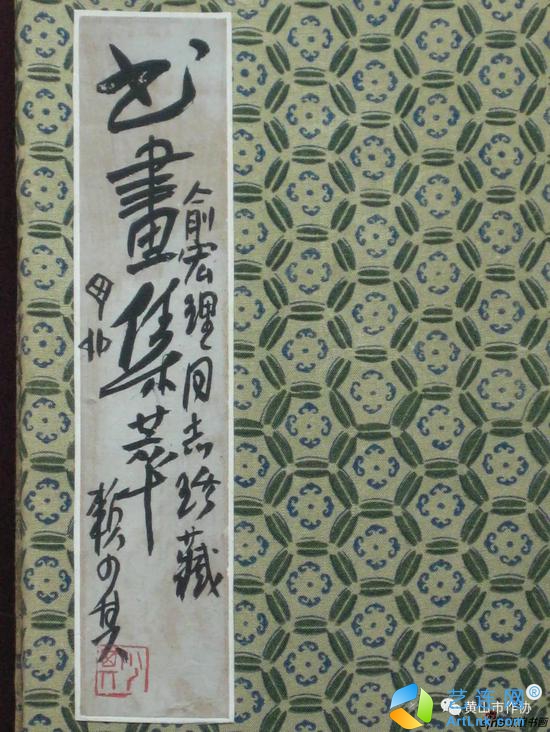 俞宏理同志珍藏
书畫集萃
賴少其
黄山市作协
艺连网®
ArtLink.com